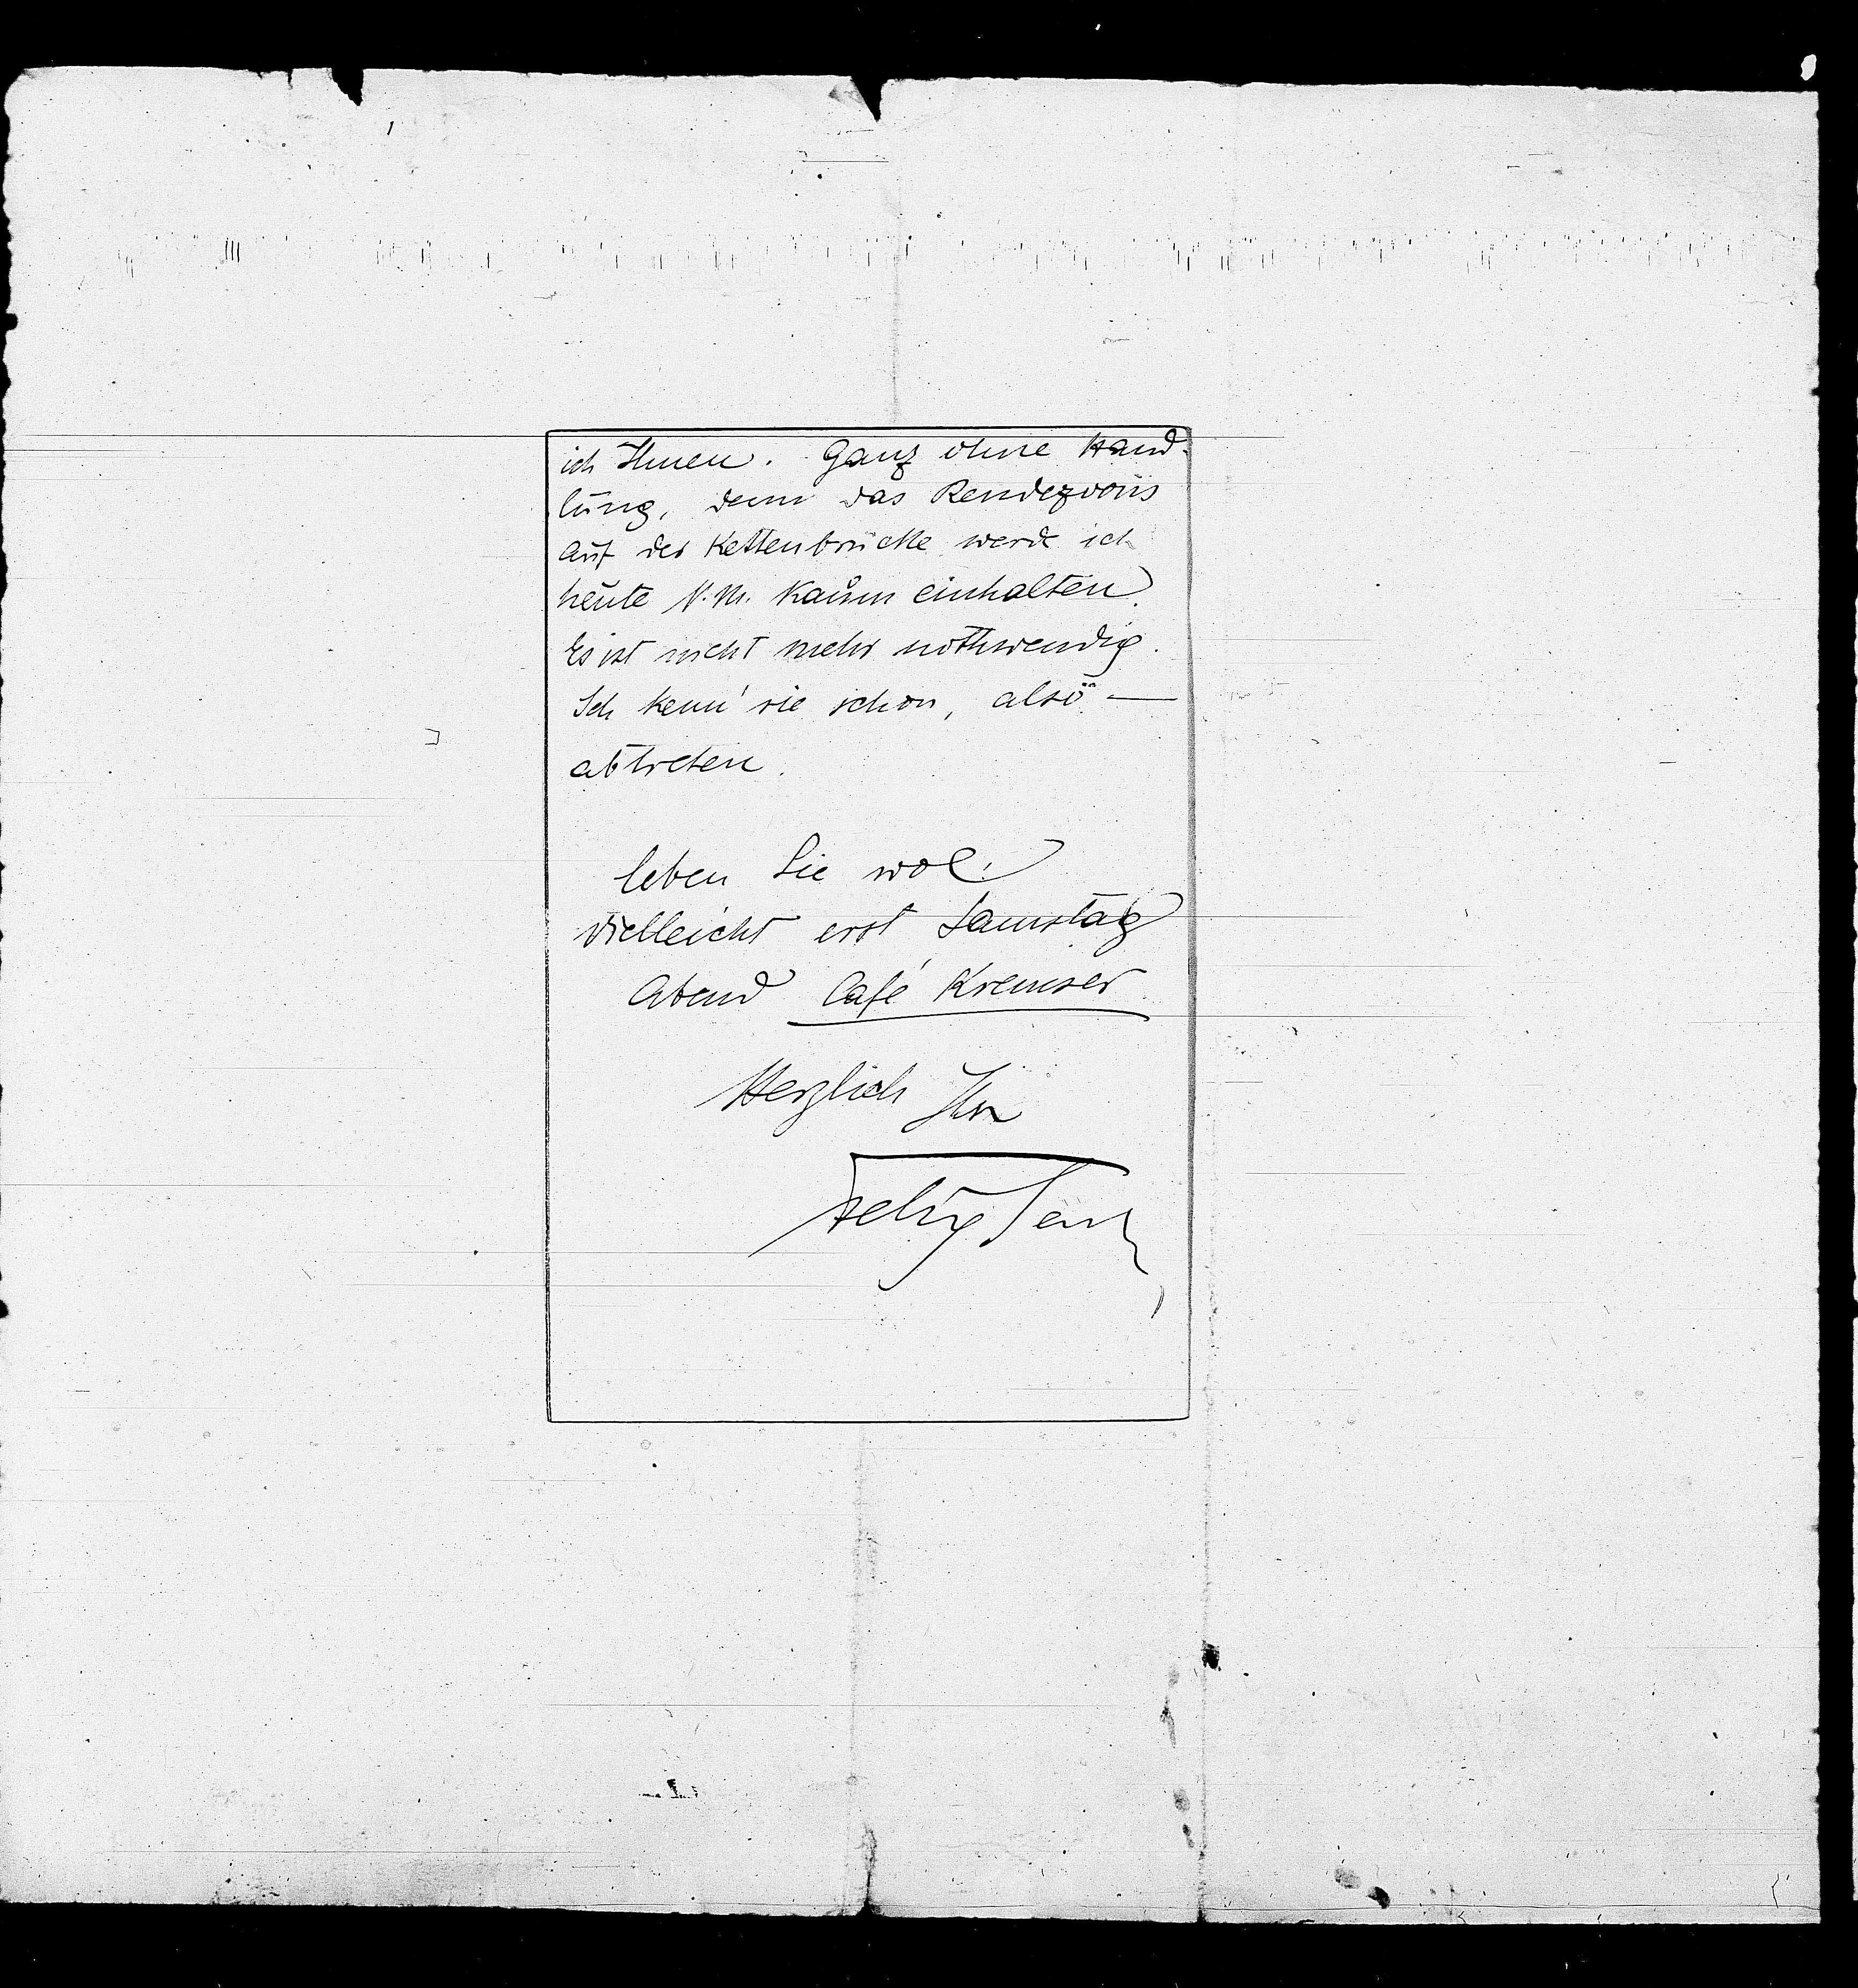 ich Ihnen. Ganz ohne Hand-
lung, denn das Rendezvous
auf der Kettenbrücke werde ich
heute N.M. kaum einhalten.
Es ist nicht mehr nothwendig.
Ich kenn' sie schon, also —
abtreten.
leben Sie wol!
vielleicht erst Samstag
Abend Café Kremser
Herzlich Ihr
Felix Salten